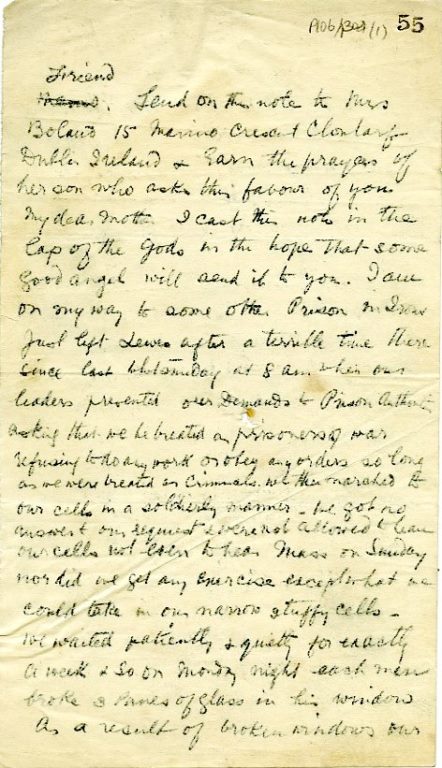 P106/304(1) 55
Friend
Send on this note to Mrs
Boland 15 Marino Crescent Clontarf
Dublin Ireland & Earn the prayers of
her son who asks this favour of you
My dear Mother I cast this note in the
Lap of the Gods in the hope that some
good angel will send it to you. I am
on my way to some other Prison in Irons
Just left Lewes after a terrible time there
since last Whitmonday at 8 am when our
leaders presented our Demands to Prison Authority
asking that we be treated as prisoners of war
refusing to do any work or obey any orders so long
as we were treated as Criminals. we then marched to
our cells in a soldierly manner - we got no
answer to our request & were not allowed to leave
our cells not even to hear Mass on Sunday
nor did we get any Exercise except what we
could take in our narrow stuffy cells -
we waited patiently & quietly for exactly
a week & so on Monday night each man
broke 3 Panes of glass in his window
As a result of broken windows our